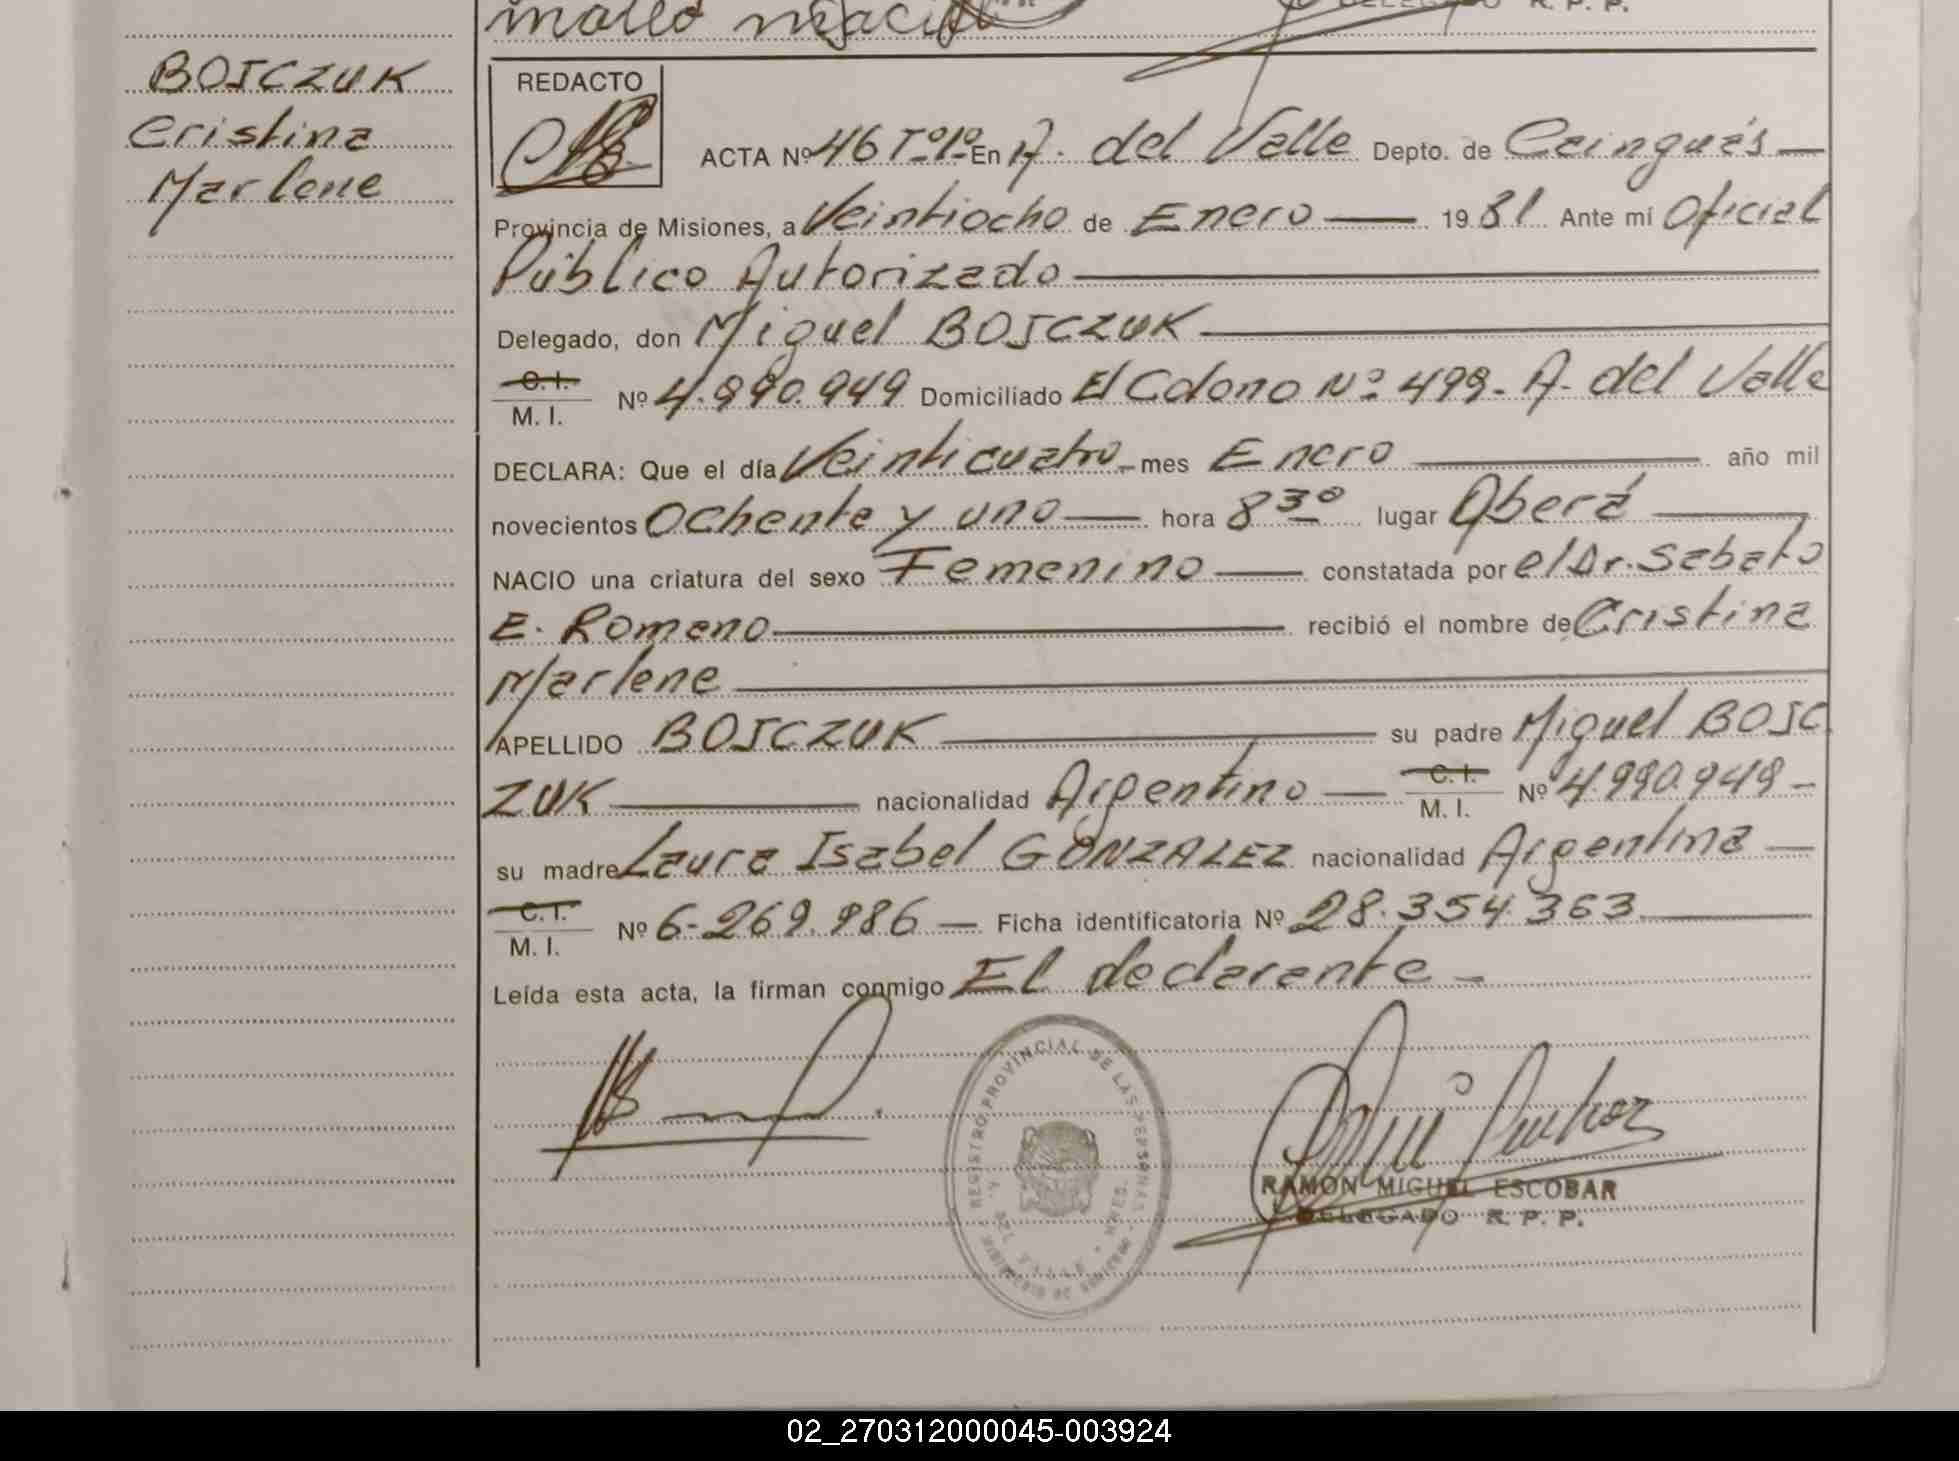 BOJCZUK
Cristina
Marlene
REDACTO
ACTA Nº 46 Tº 1º En A. del Valle Depto. de Cainguás
Provincia de Misiones, a Veintiocho de Enero 1981 Ante mí Oficial
Público Autorizado
Delegado, don Miguel BOJCZUK
C. I.
M. I. Nº 4.990.949 Domiciliado El Colono Nº 499- A. del Valle
DECLARA: Que el día Veinticuatro mes Enero año mil
novecientos Ochenta y uno hora 8 30 lugar Oberá
NACIO una criatura del sexo Femenino constatada por el Dr. Sabato
E. Romano recibió el nombre de Cristina
Marlene
APELLIDO BOJCZUK su padre Miguel BOJC
ZUK nacionalidad Argentino C. I. M. I. Nº 4.990.949-
su madre Laura Isabel GONZALEZ nacionalidad Argentina
C. I.
M. I. Nº 6-269.986 Ficha identificatoria Nº 28.354.363
Leída esta acta, la firman conmigo El declarante-
REGISTRO PROVINCIAL DE LAS PERSONAS
DEL VALLE - MNES.
MINISTERIO DE GOBIERNO
RAMON MIGUEL ESCOBAR
DELEGADO R. P. P.
02_270312000045-003924